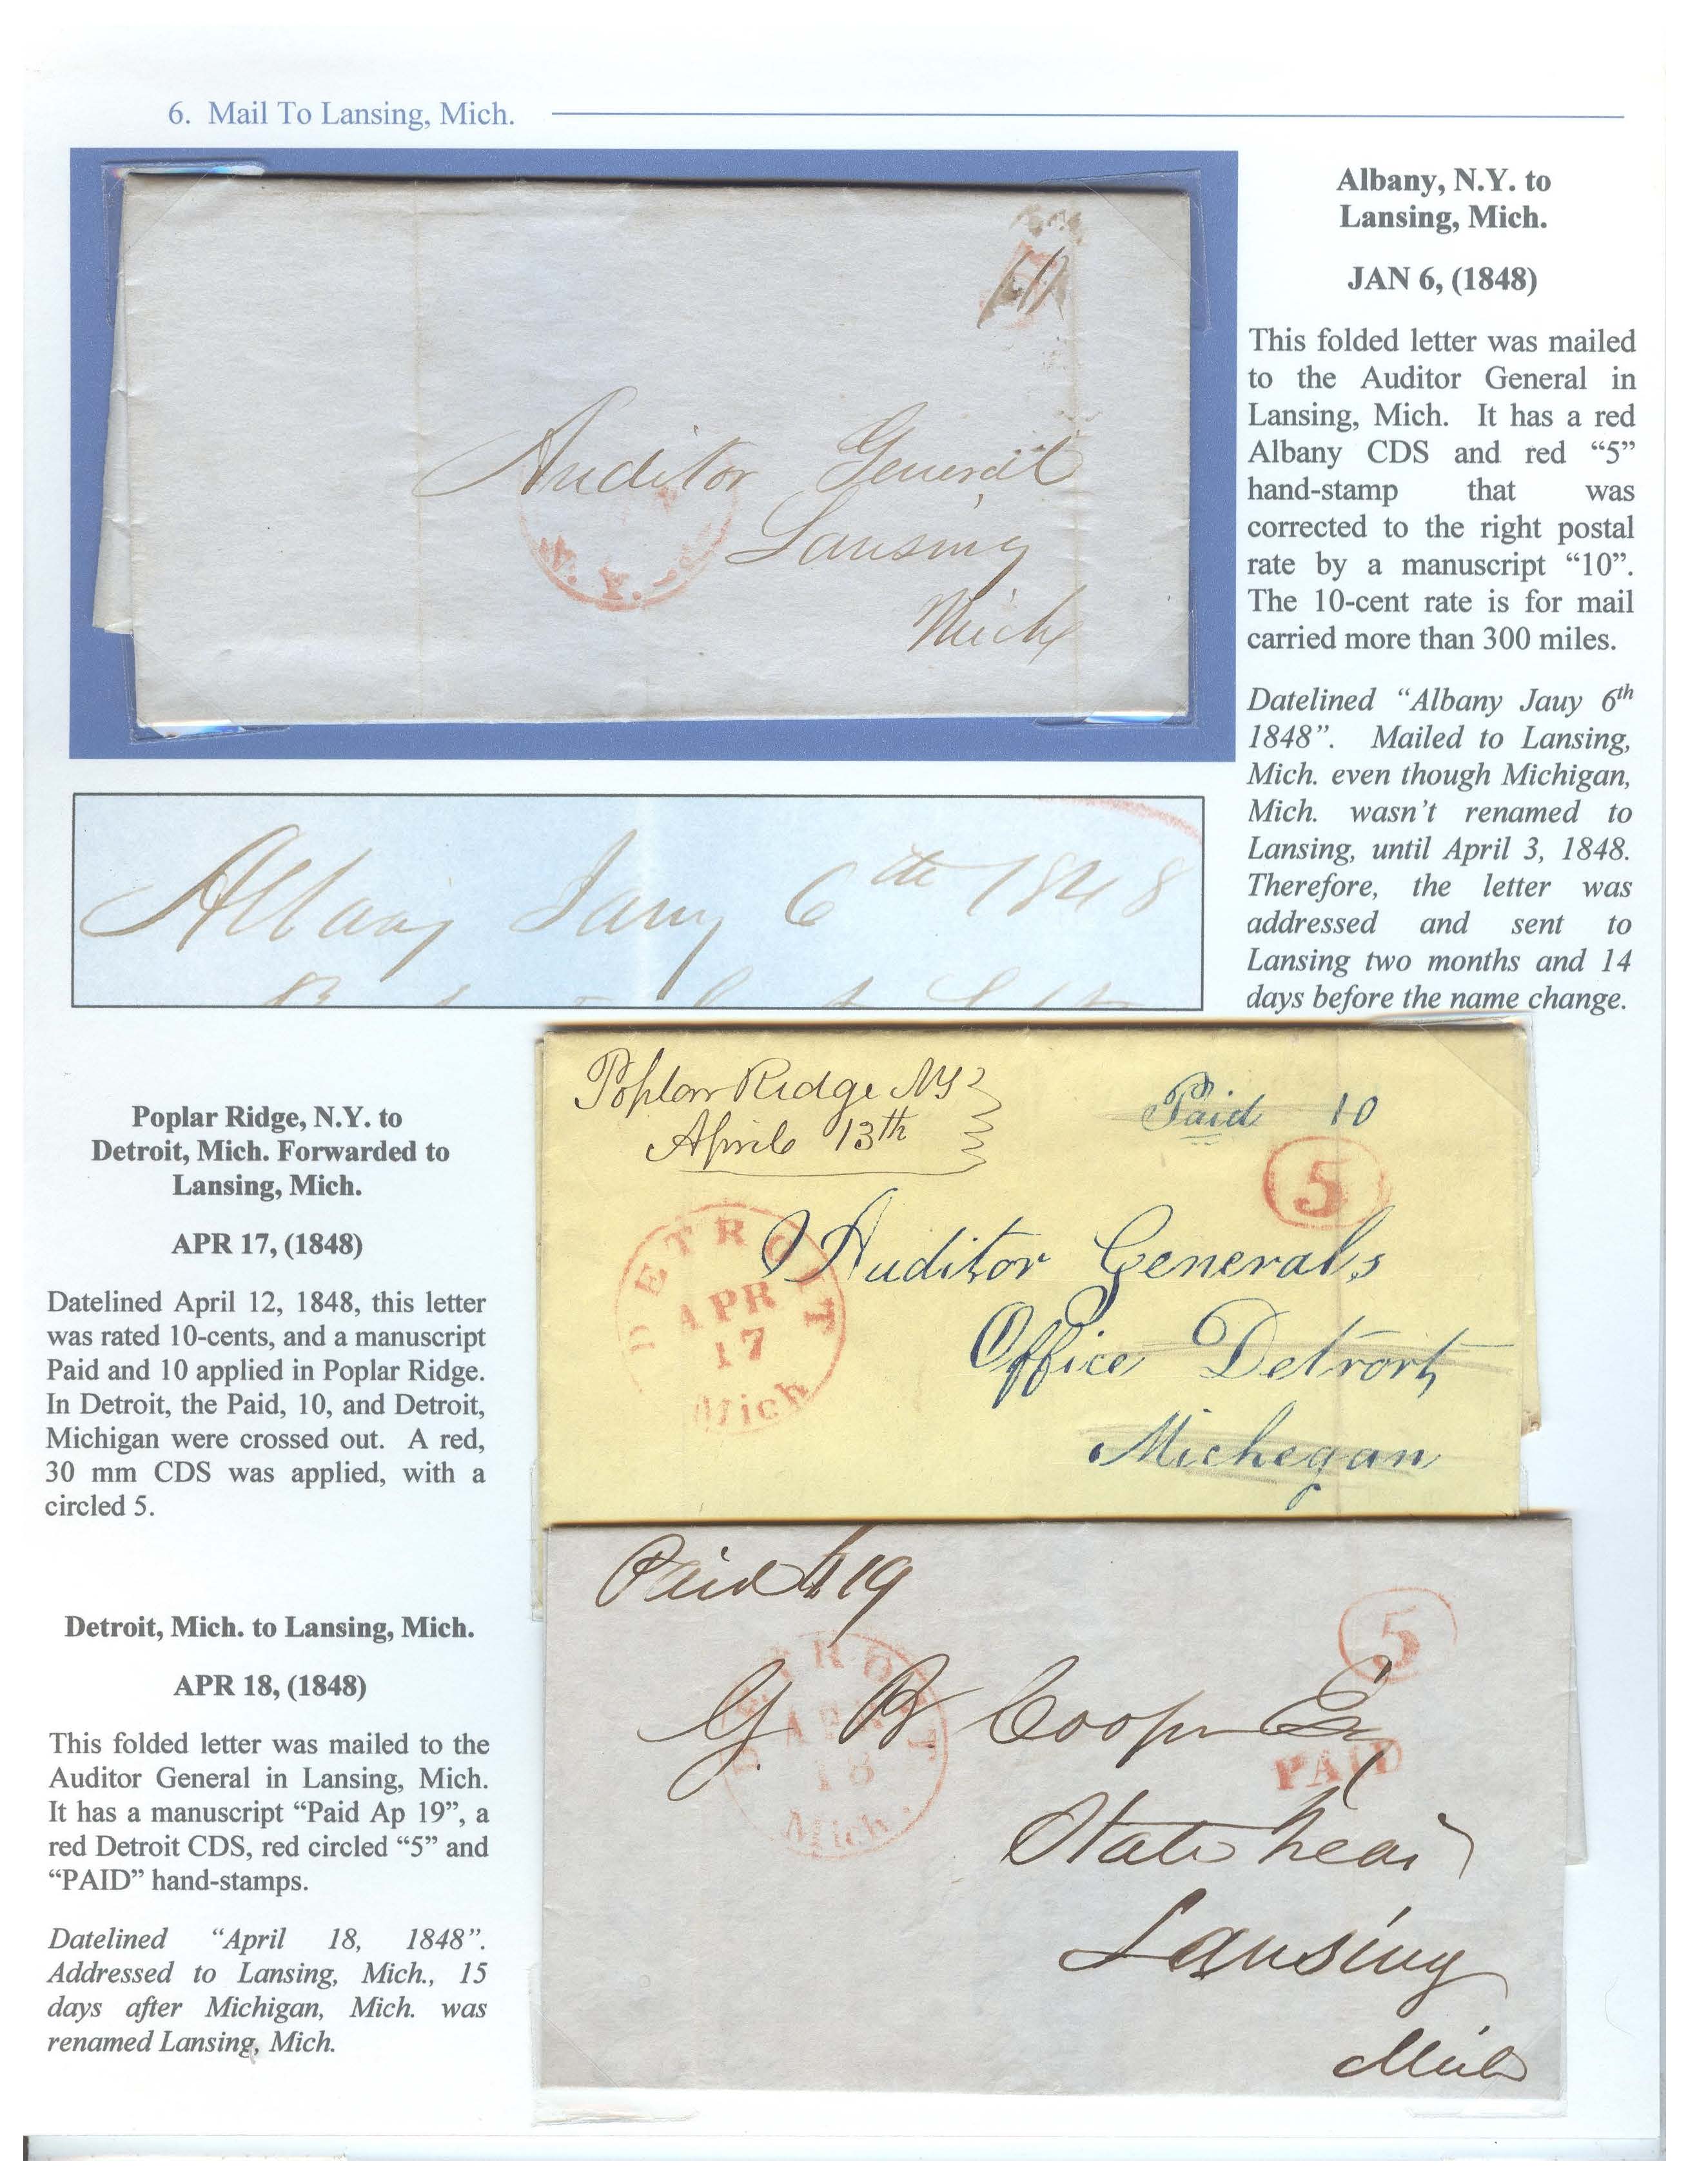 6. Mail To Lansing, Mich.
Auditor General
Lansing
Mich
N.Y.
Albany, N.Y. to
Lansing, Mich.
JAN 6, (1848)
This folded letter was mailed
to the Auditor General in
Lansing, Mich. It has a red
Albany CDS and red “5”
hand-stamp that was
corrected to the right postal
rate by a manuscript “10”.
The 10-cent rate is for mail
carried more than 300 miles.
Datelined “Albany Jauy 6th
1848”. Mailed to Lansing,
Mich. even though Michigan,
Mich. wasn’t renamed to
Lansing, until April 3, 1848.
Therefore, the letter was
addressed and sent to
Lansing two months and 14
days before the name change.
Albany Jauy 6th 1848
Poplar Ridge, N.Y. to
Detroit, Mich. Forwarded to
Lansing, Mich.
APR 17, (1848)
Datelined April 12, 1848, this letter
was rated 10-cents, and a manuscript
Paid and 10 applied in Poplar Ridge.
In Detroit, the Paid, 10, and Detroit,
Michigan were crossed out. A red,
30 mm CDS was applied, with a
circled 5.
Poplar Ridge NY
April 13th
Paid 10
5
DETROIT
APR
17
Mich
Auditor Generals
Office Detroit
Michegan
Detroit, Mich. to Lansing, Mich.
APR 18, (1848)
This folded letter was mailed to the
Auditor General in Lansing, Mich.
It has a manuscript “Paid Ap 19”, a
red Detroit CDS, red circled “5” and
“PAID” hand-stamps.
Datelined “April 18, 1848”.
Addressed to Lansing, Mich., 15
days after Michigan, Mich. was
renamed Lansing, Mich.
Paid A 19
5
DETROIT
APR
18
Mich.
G. B. Cooper Esq
PAID
State
Lansing
Mich